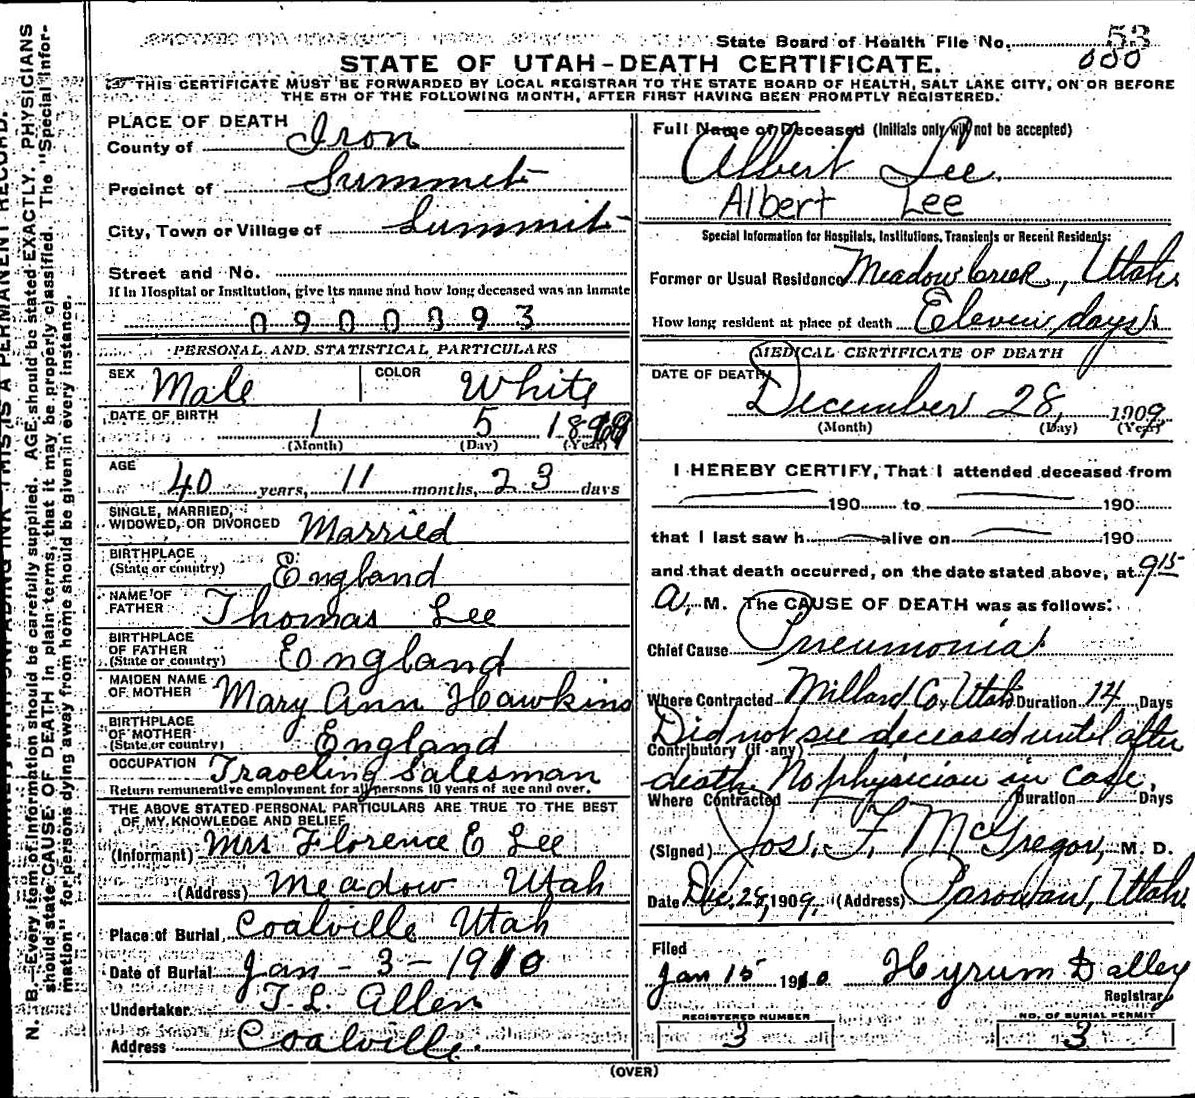 State Board of Health File No. 53
000
STATE OF UTAH-DEATH CERTIFICATE.
THIS CERTIFICATE MUST BE FORWARDED BY LOCAL REGISTRAR TO THE STATE BOARD OF HEALTH, SALT LAKE CITY, ON OR BEFORE
THE 5TH OF THE FOLLOWING MONTH, AFTER FIRST HAVING BEEN PROMPTLY REGISTERED.
PLACE OF DEATH
County of Iron
Precinct of Summit
City, Town or Village of Summit
Street and No.
If in Hospital or Institution, give its name and how long deceased was an inmate
0900093
PERSONAL AND STATISTICAL PARTICULARS
SEX Male COLOR White
DATE OF BIRTH 1 5
(Month) (Day) (Year)
AGE 40 years, 11 months, 23 days
SINGLE, MARRIED,
WIDOWED, OR DIVORCED Married
BIRTHPLACE
(State or country) England
NAME OF
FATHER Thomas Lee
BIRTHPLACE
OF FATHER
(State or country) England
MAIDEN NAME
OF MOTHER Mary Ann Hawkins
BIRTHPLACE
OF MOTHER
(State or country) England
OCCUPATION Traveling Salesman
Return remunerative employment for all persons 10 years of age and over.
THE ABOVE STATED PERSONAL PARTICULARS ARE TRUE TO THE BEST
OF MY KNOWLEDGE AND BELIEF
(Informant) Mrs Florence E Lee
(Address) Meadow Utah
Place of Burial Coalville Utah
Date of Burial Jan - 3 - 1910
Undertaker T. L. Allen
Address Coalville.
Full Name of Deceased (Initials only will not be accepted)
Albert Lee.
Albert Lee
Special Information for Hospitals, Institutions, Transients or Recent Residents:
Former or Usual Residence Meadow creek, Utah
How long resident at place of death Eleven days.
MEDICAL CERTIFICATE OF DEATH
DATE OF DEATH
December 28, 1909
(Month) (Day) (Year)
I HEREBY CERTIFY, That I attended deceased from
190 to 190
that I last saw h alive on 190
and that death occurred, on the date stated above, at 9 15
A. M. The CAUSE OF DEATH was as follows:
Chief Cause Pneumonia
Where Contracted Millard Co, Utah Duration 14 Days
Did not see deceased until after
Contributory (if any)
death. No physician in case.
Where Contracted Duration Days
(Signed) Jos. F. McGregor, M. D.
Date Dec. 28, 1909, (Address) Parowan, Utah.
Filed
Jan 15 1910 Hyrum Dalley
Registrar
REGISTERED NUMBER
3
NO. OF BURIAL PERMIT
3
(OVER)
N. B.-Every item of information should be carefully supplied. AGE should be stated EXACTLY. PHYSICIANS
should state CAUSE OF DEATH in plain terms, that it may be properly classified. The "Special Infor-
mation" for persons dying away from home should be given in every instance.